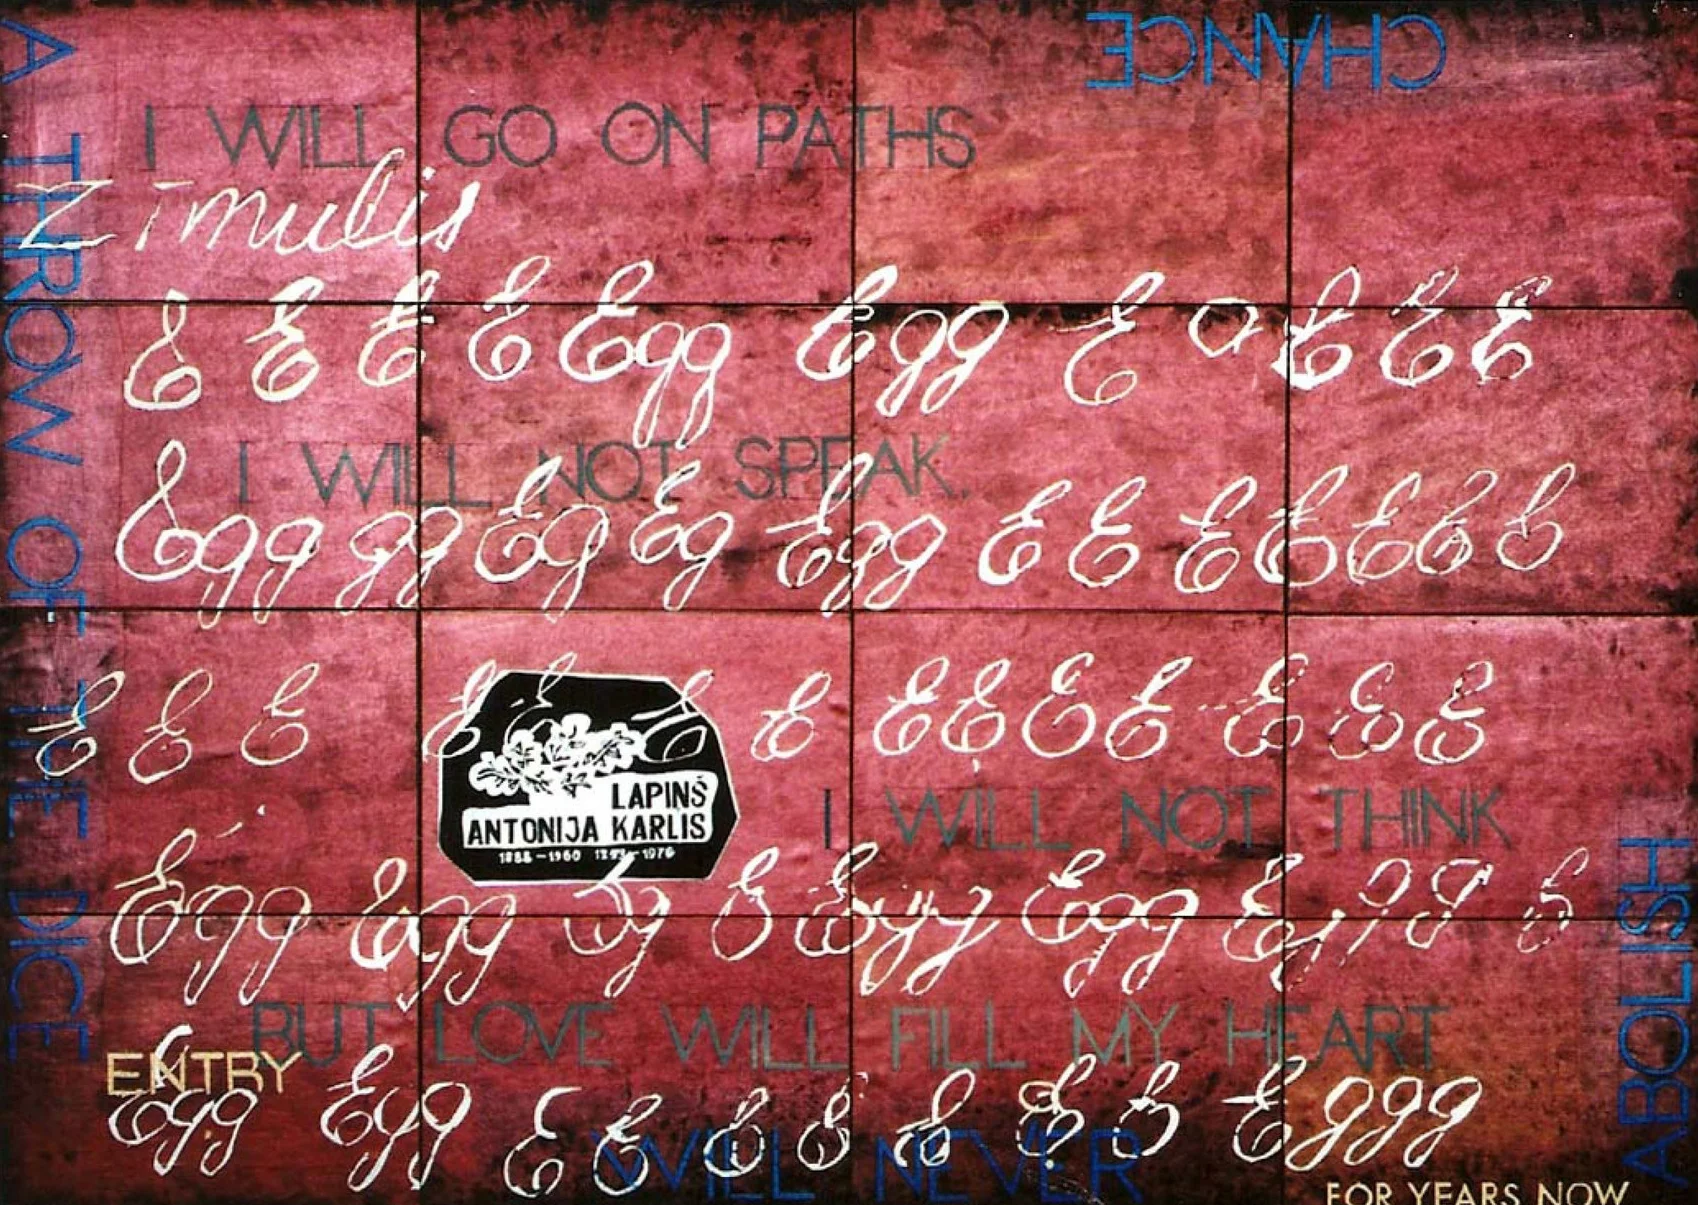 CHANCE
A THROW OF THE DICE
I WILL GO ON PATHS
Zīmulis
E E E E Egg Egg E E E E
I WILL NOT SPEAK.
Egg gg Eg Eg Egg E E E E E E E
E E E E E E E E E E E E E E
LAPINŠ
ANTONIJA KARLIS
1888-1960 1976
I WILL NOT THINK
Egg Egg E Egg Egg
BUT LOVE WILL FILL MY HEART
ENTRY
Egg Egg E E E E E E E Eggg
WILL NEVER
ABOLISH
FOR YEARS NOW